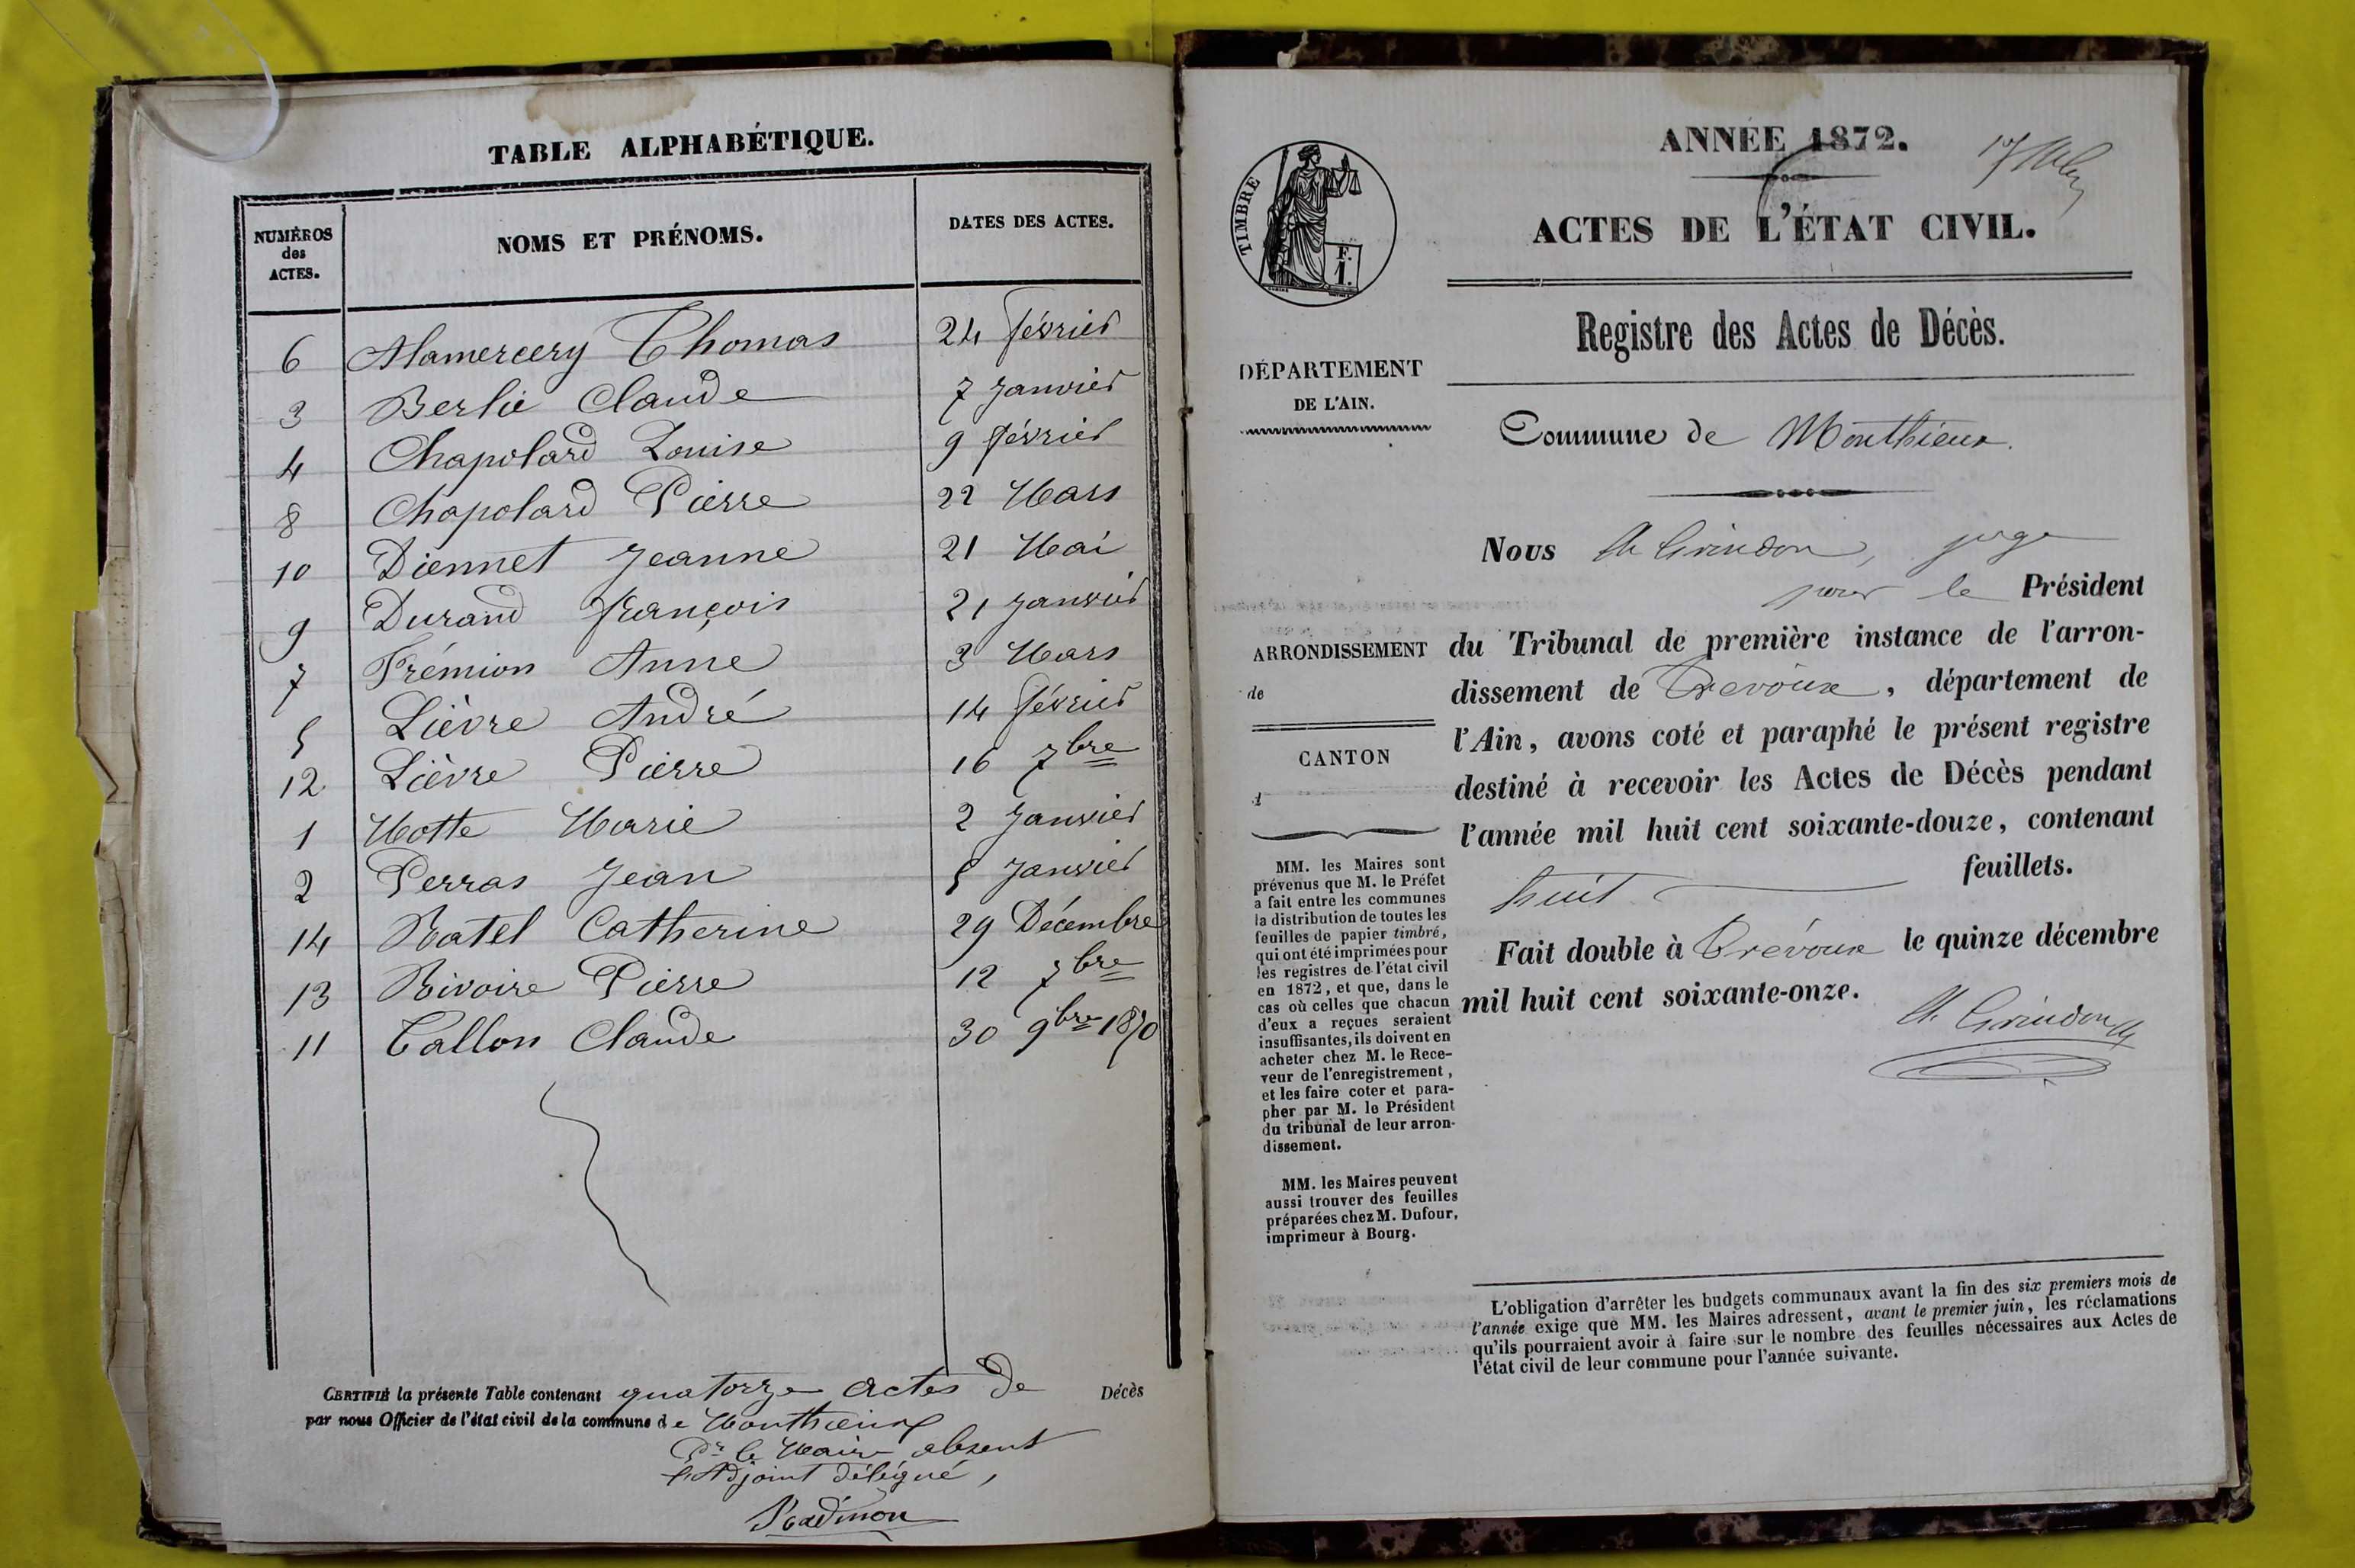 TABLE ALPHABÉTIQUE.
NUMÉROS des ACTES.
NOMS ET PRÉNOMS.
DATES DES ACTES.
6 Alamercery Thomas 24 février
3 Berlie Claude 7 Janvier
4 Chapolard Louise 9 février
8 Chapolard Pierre 22 Mars
10 Diennet Jeanne 21 Mai
9 Durand françois 21 Janvier
7 Frémion Anne 3 Mars
5 Lièvre André 14 février
12 Lièvre Pierre 16 7bre
1 Motte Marie 2 Janvier
2 Perras Jean 5 Janvier
14 Ratel Catherine 29 Décembre
13 Rivoire Pierre 12 7bre
11 Tallon Claude 30 9bre 1870
CERTIFIÉ la présente Table contenant quatorze actes de Décès
par nous Officier de l'état civil de la commune de Monthieux
Pr le Maire absent
l'Adjoint délégué,
ANNÉE 1872.
ACTES DE L'ÉTAT CIVIL.
TIMBRE
F.
1.
Registre des Actes de Décès.
DÉPARTEMENT
DE L'AIN.
Commune de Monthieux.
Nous Ch Grindon, juge
pour le Président
ARRONDISSEMENT
de
CANTON
d
du Tribunal de première instance de l'arron-
dissement de Trevoux, département de
l'Ain, avons coté et paraphé le présent registre
destiné à recevoir les Actes de Décès pendant
l'année mil huit cent soixante-douze, contenant
huit feuillets.
Fait double à Trévoux le quinze décembre
mil huit cent soixante-onze.
Ch. Grindon
MM. les Maires sont
prévenus que M. le Préfet
a fait entre les communes
la distribution de toutes les
feuilles de papier timbré,
qui ont été imprimées pour
les registres de l'état civil
en 1872, et que, dans le
cas où celles que chacun
d'eux a reçues seraient
insuffisantes, ils doivent en
acheter chez M. le Rece-
veur de l'enregistrement,
et les faire coter et para-
pher par M. le Président
du tribunal de leur arron-
dissement.
MM. les Maires peuvent
aussi trouver des feuilles
préparées chez M. Dufour,
imprimeur à Bourg.
L'obligation d'arrêter les budgets communaux avant la fin des six premiers mois de
l'année exige que MM. les Maires adressent, avant le premier juin, les réclamations
qu'ils pourraient avoir à faire sur le nombre des feuilles nécessaires aux Actes de
l'état civil de leur commune pour l'année suivante.